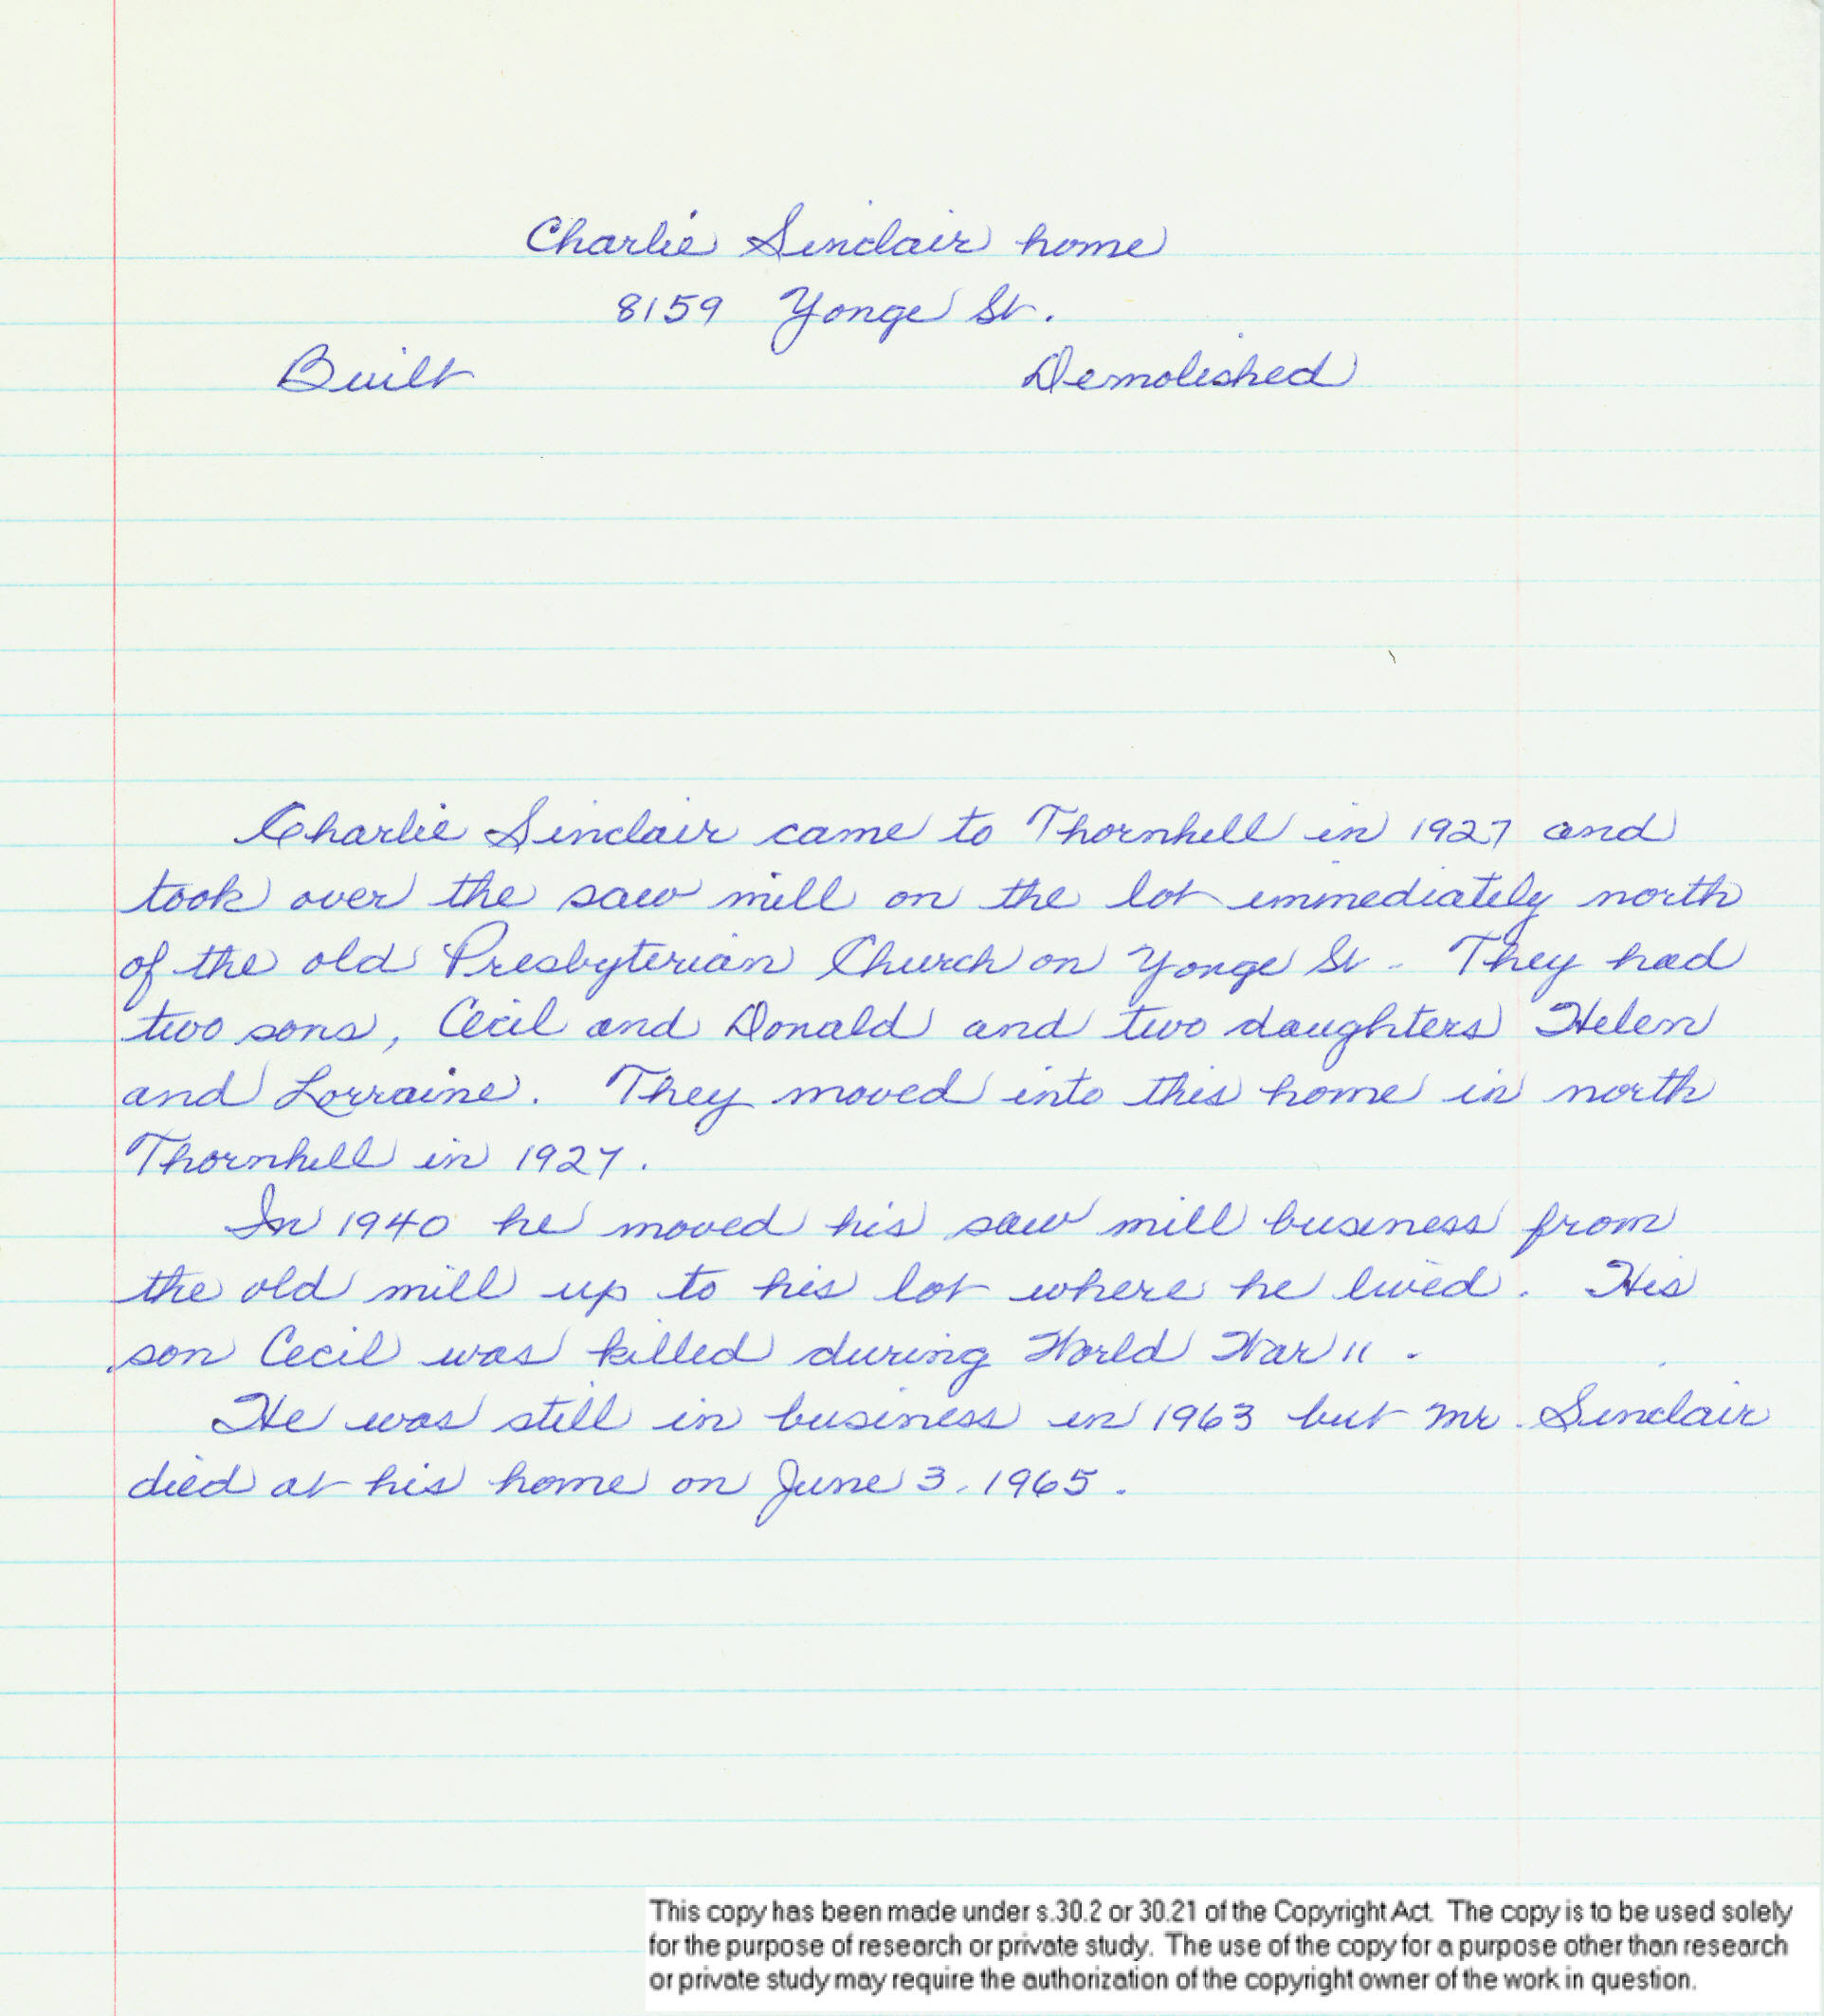 Charlie Sinclair home
8159 Yonge St.
Built Demolished
Charlie Sinclair came to Thornhill in 1927 and
took over the saw mill on the lot immediately north
of the old Presbyterian Church on Yonge St. They had
two sons, Cecil and Donald and two daughters Helen
and Lorraine. They moved into this home in north
Thornhill in 1927.
In 1940 he moved his saw mill business from
the old mill up to his lot where he lived. His
son Cecil was killed during World War 11.
He was still in business in 1963 but Mr. Sinclair
died at his home on June 3, 1965.
This copy has been made under s.30.2 or 30.21 of the Copyright Act. The copy is to be used solely
for the purpose of research or private study. The use of the copy for a purpose other than research
or private study may require the authorization of the copyright owner of the work in question.